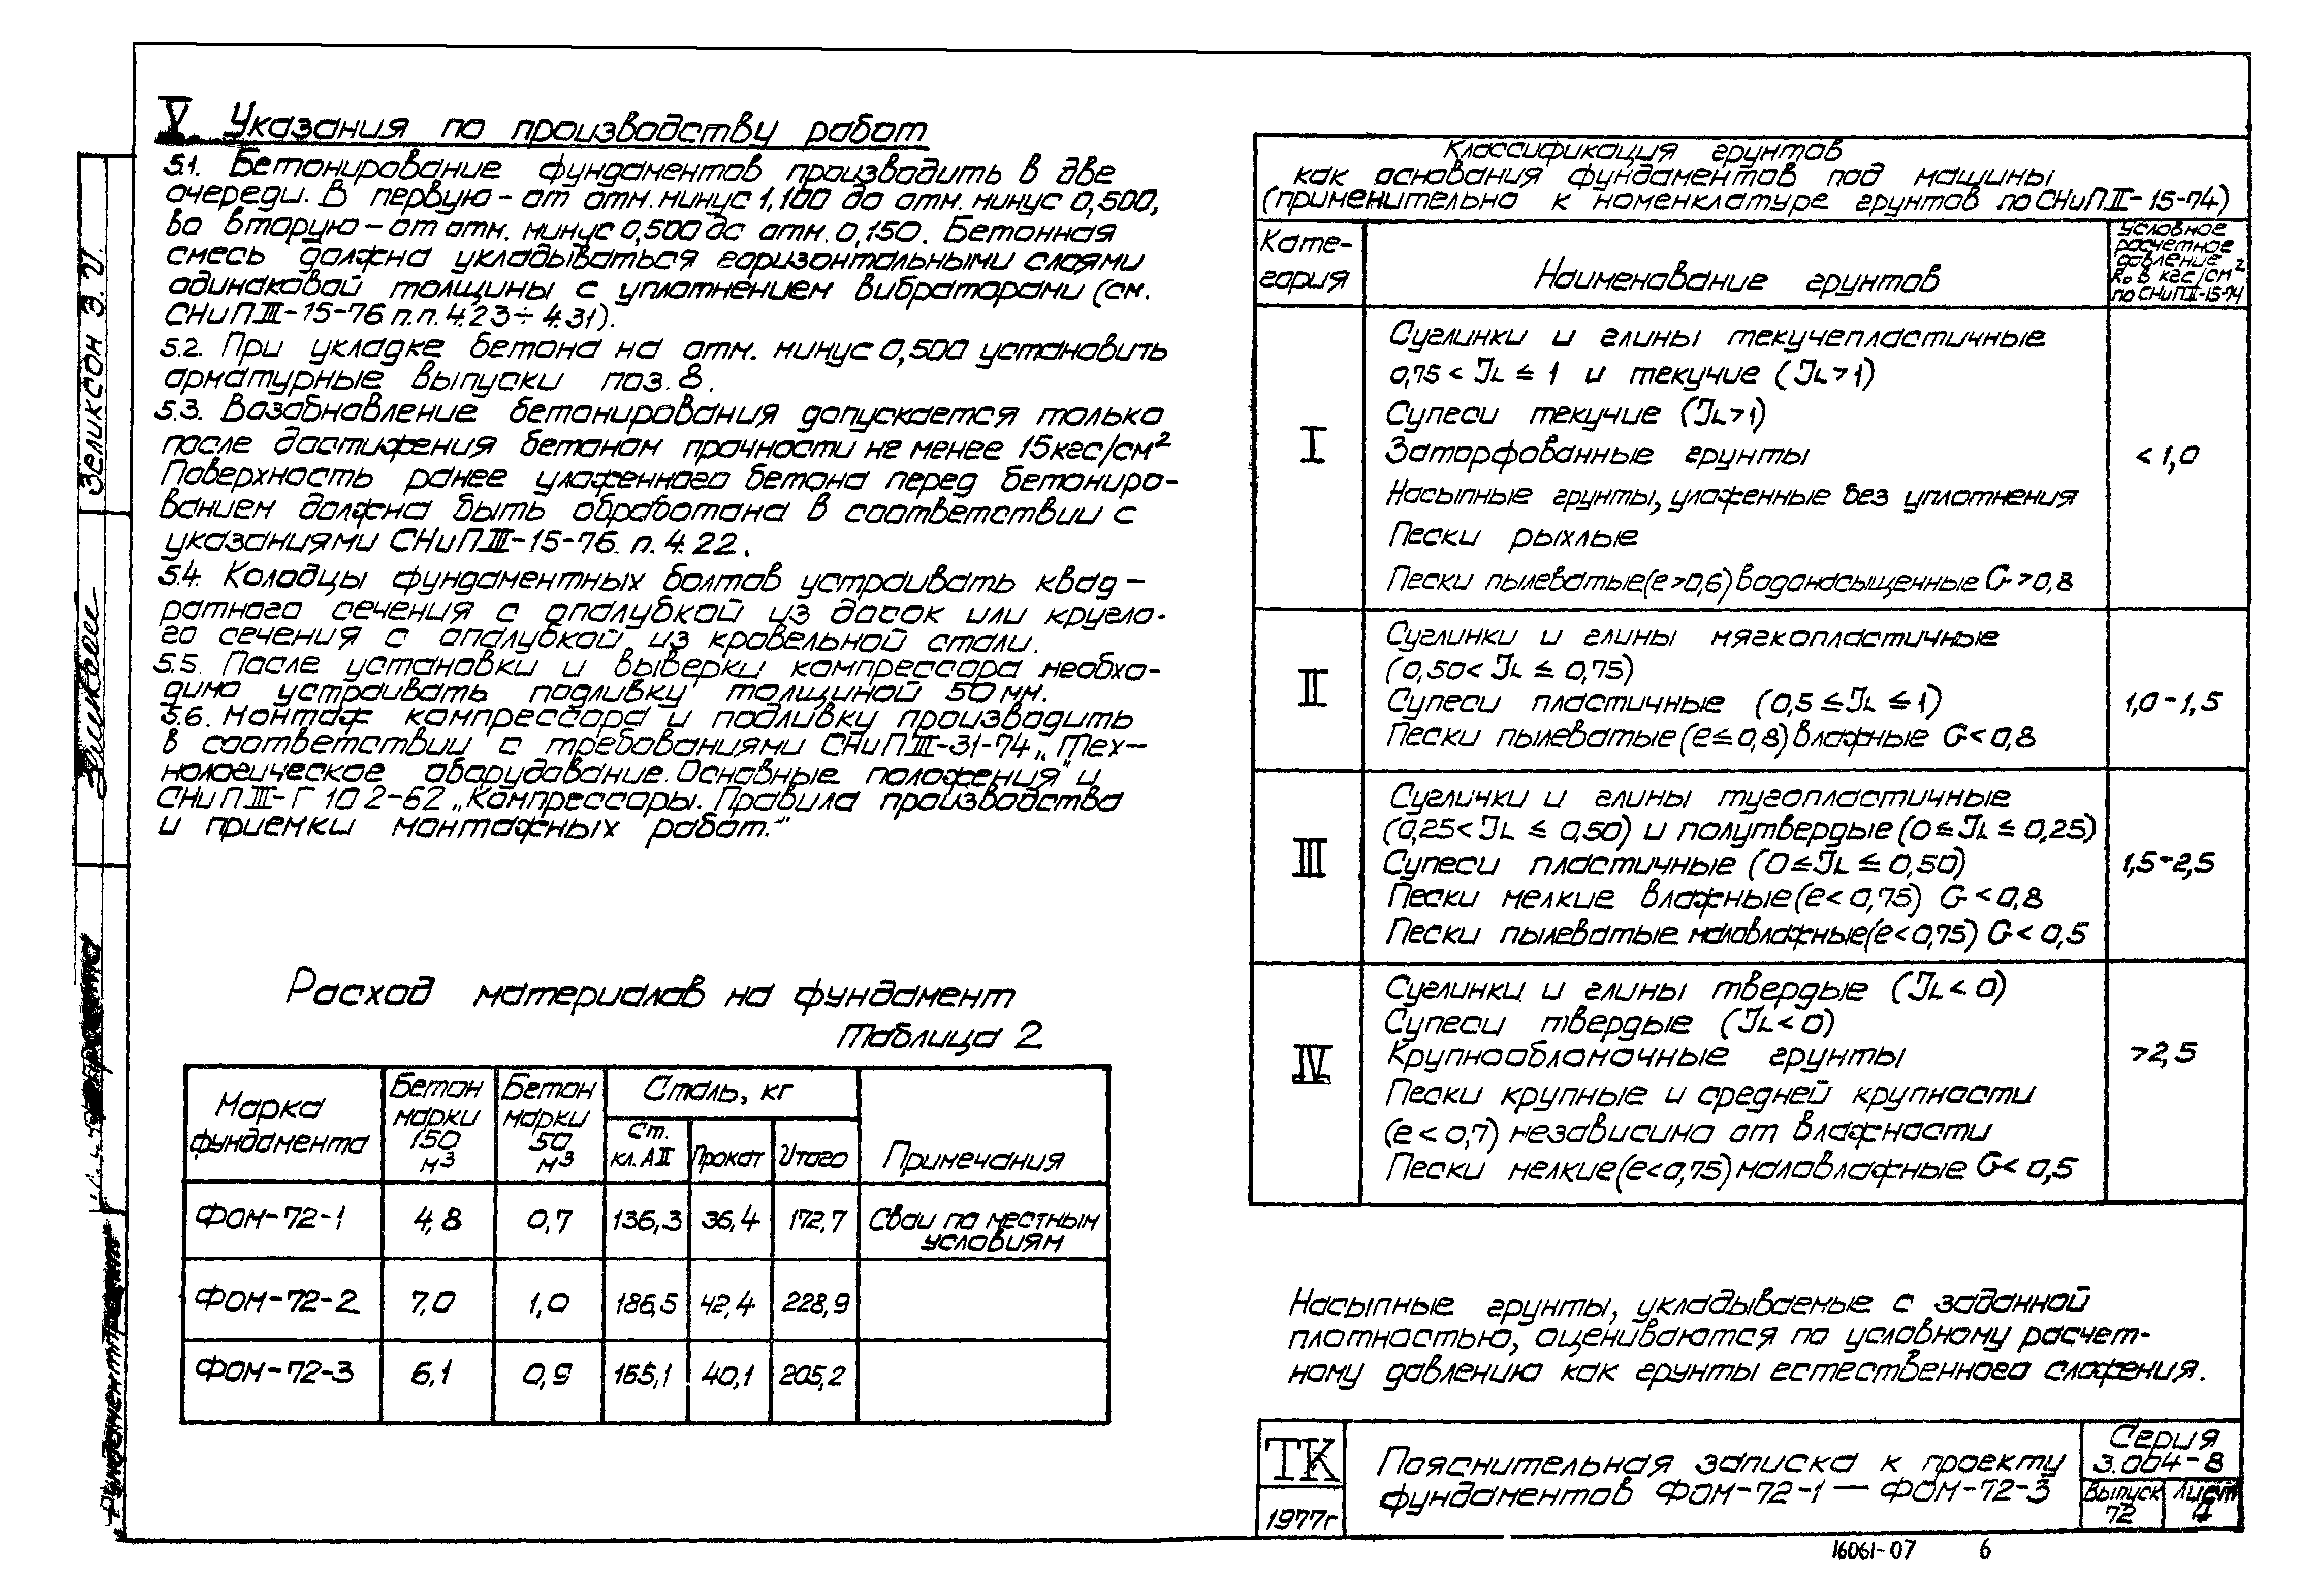 V. Указания по производству работ
5.1. Бетонирование фундаментов производить в две
очереди. В первую - от отм. минус 1,100 до отм. минус 0,500,
во вторую - от отм. минус 0,500 до отм. 0,150. Бетонная
смесь должна укладываться горизонтальными слоями
одинаковой толщины с уплотнением вибраторами (см.
СНиП III-15-76 п.п. 4.23÷4.31).
5.2. При укладке бетона на отм. минус 0,500 установить
арматурные выпуски поз. 8.
5.3. Возобновление бетонирования допускается только
после достижения бетоном прочности не менее 15 кгс/см²
Поверхность ранее уложенного бетона перед бетониро-
ванием должна быть обработана в соответствии с
указаниями СНиП III-15-76 п. 4.22.
5.4. Колодцы фундаментных болтов устраивать квад-
ратного сечения с опалубкой из досок или кругло-
го сечения с опалубкой из кровельной стали.
5.5. После установки и выверки компрессора необхо-
димо устраивать подливку толщиной 50 мм.
5.6. Монтаж компрессора и подливку производить
в соответствии с требованиями СНиП III-31-74 „Тех-
нологическое оборудование. Основные положения" и
СНиП III-Г 10 2-62 „Компрессоры. Правила производства
и приемки монтажных работ."
Расход материалов на фундамент
Таблица 2
Марка фундамента
Бетон марки 150 м³
Бетон марки 50 м³
Сталь, кг
Ст. кл. АII
Прокат
Итого
Примечания
ФОМ-72-1 4,8 0,7 136,3 36,4 172,7 Сваи по местным
условиям
ФОМ-72-2 7,0 1,0 186,5 42,4 228,9
ФОМ-72-3 6,1 0,9 165,1 40,1 205,2
Классификация грунтов
как основания фундаментов под машины
(применительно к номенклатуре грунтов по СНиП II-15-74)
Кате-
гория
Наименование грунтов
Условное
расчетное
давление
R₀ в кгс/см²
по СНиП II-15-74
I
Суглинки и глины текучепластичные
0,75 < JL ≤ 1 и текучие (JL>1)
Супеси текучие (JL>1)
Заторфованные грунты
Насыпные грунты, уложенные без уплотнения
Пески рыхлые
Пески пылеватые (e>0,6) водонасыщенные G>0,8
<1,0
II
Суглинки и глины мягкопластичные
(0,50< JL ≤ 0,75)
Супеси пластичные (0,5 ≤ JL ≤ 1)
Пески пылеватые (e≤0,8) влажные G<0,8
1,0-1,5
III
Суглинки и глины тугопластичные
(0,25< JL ≤ 0,50) и полутвердые (0 ≤ JL ≤ 0,25)
Супеси пластичные (0 ≤ JL ≤ 0,50)
Пески мелкие влажные (e< 0,75) G<0,8
Пески пылеватые маловлажные (e<0,75) G< 0,5
1,5-2,5
IV
Суглинки и глины твердые (JL< 0)
Супеси твердые (JL<0)
Крупнообломочные грунты
Пески крупные и средней крупности
(e < 0,7) независимо от влажности
Пески мелкие (e<0,75) маловлажные G< 0,5
>2,5
Насыпные грунты, укладываемые с заданной
плотностью, оцениваются по условному расчет-
ному давлению как грунты естественного сложения.
ТК
1977г
Пояснительная записка к проекту
фундаментов ФОМ-72-1 — ФОМ-72-3
Серия
3.004-8
Выпуск
72
Лист
4
16061-07 6
Зеликсон Э. И.